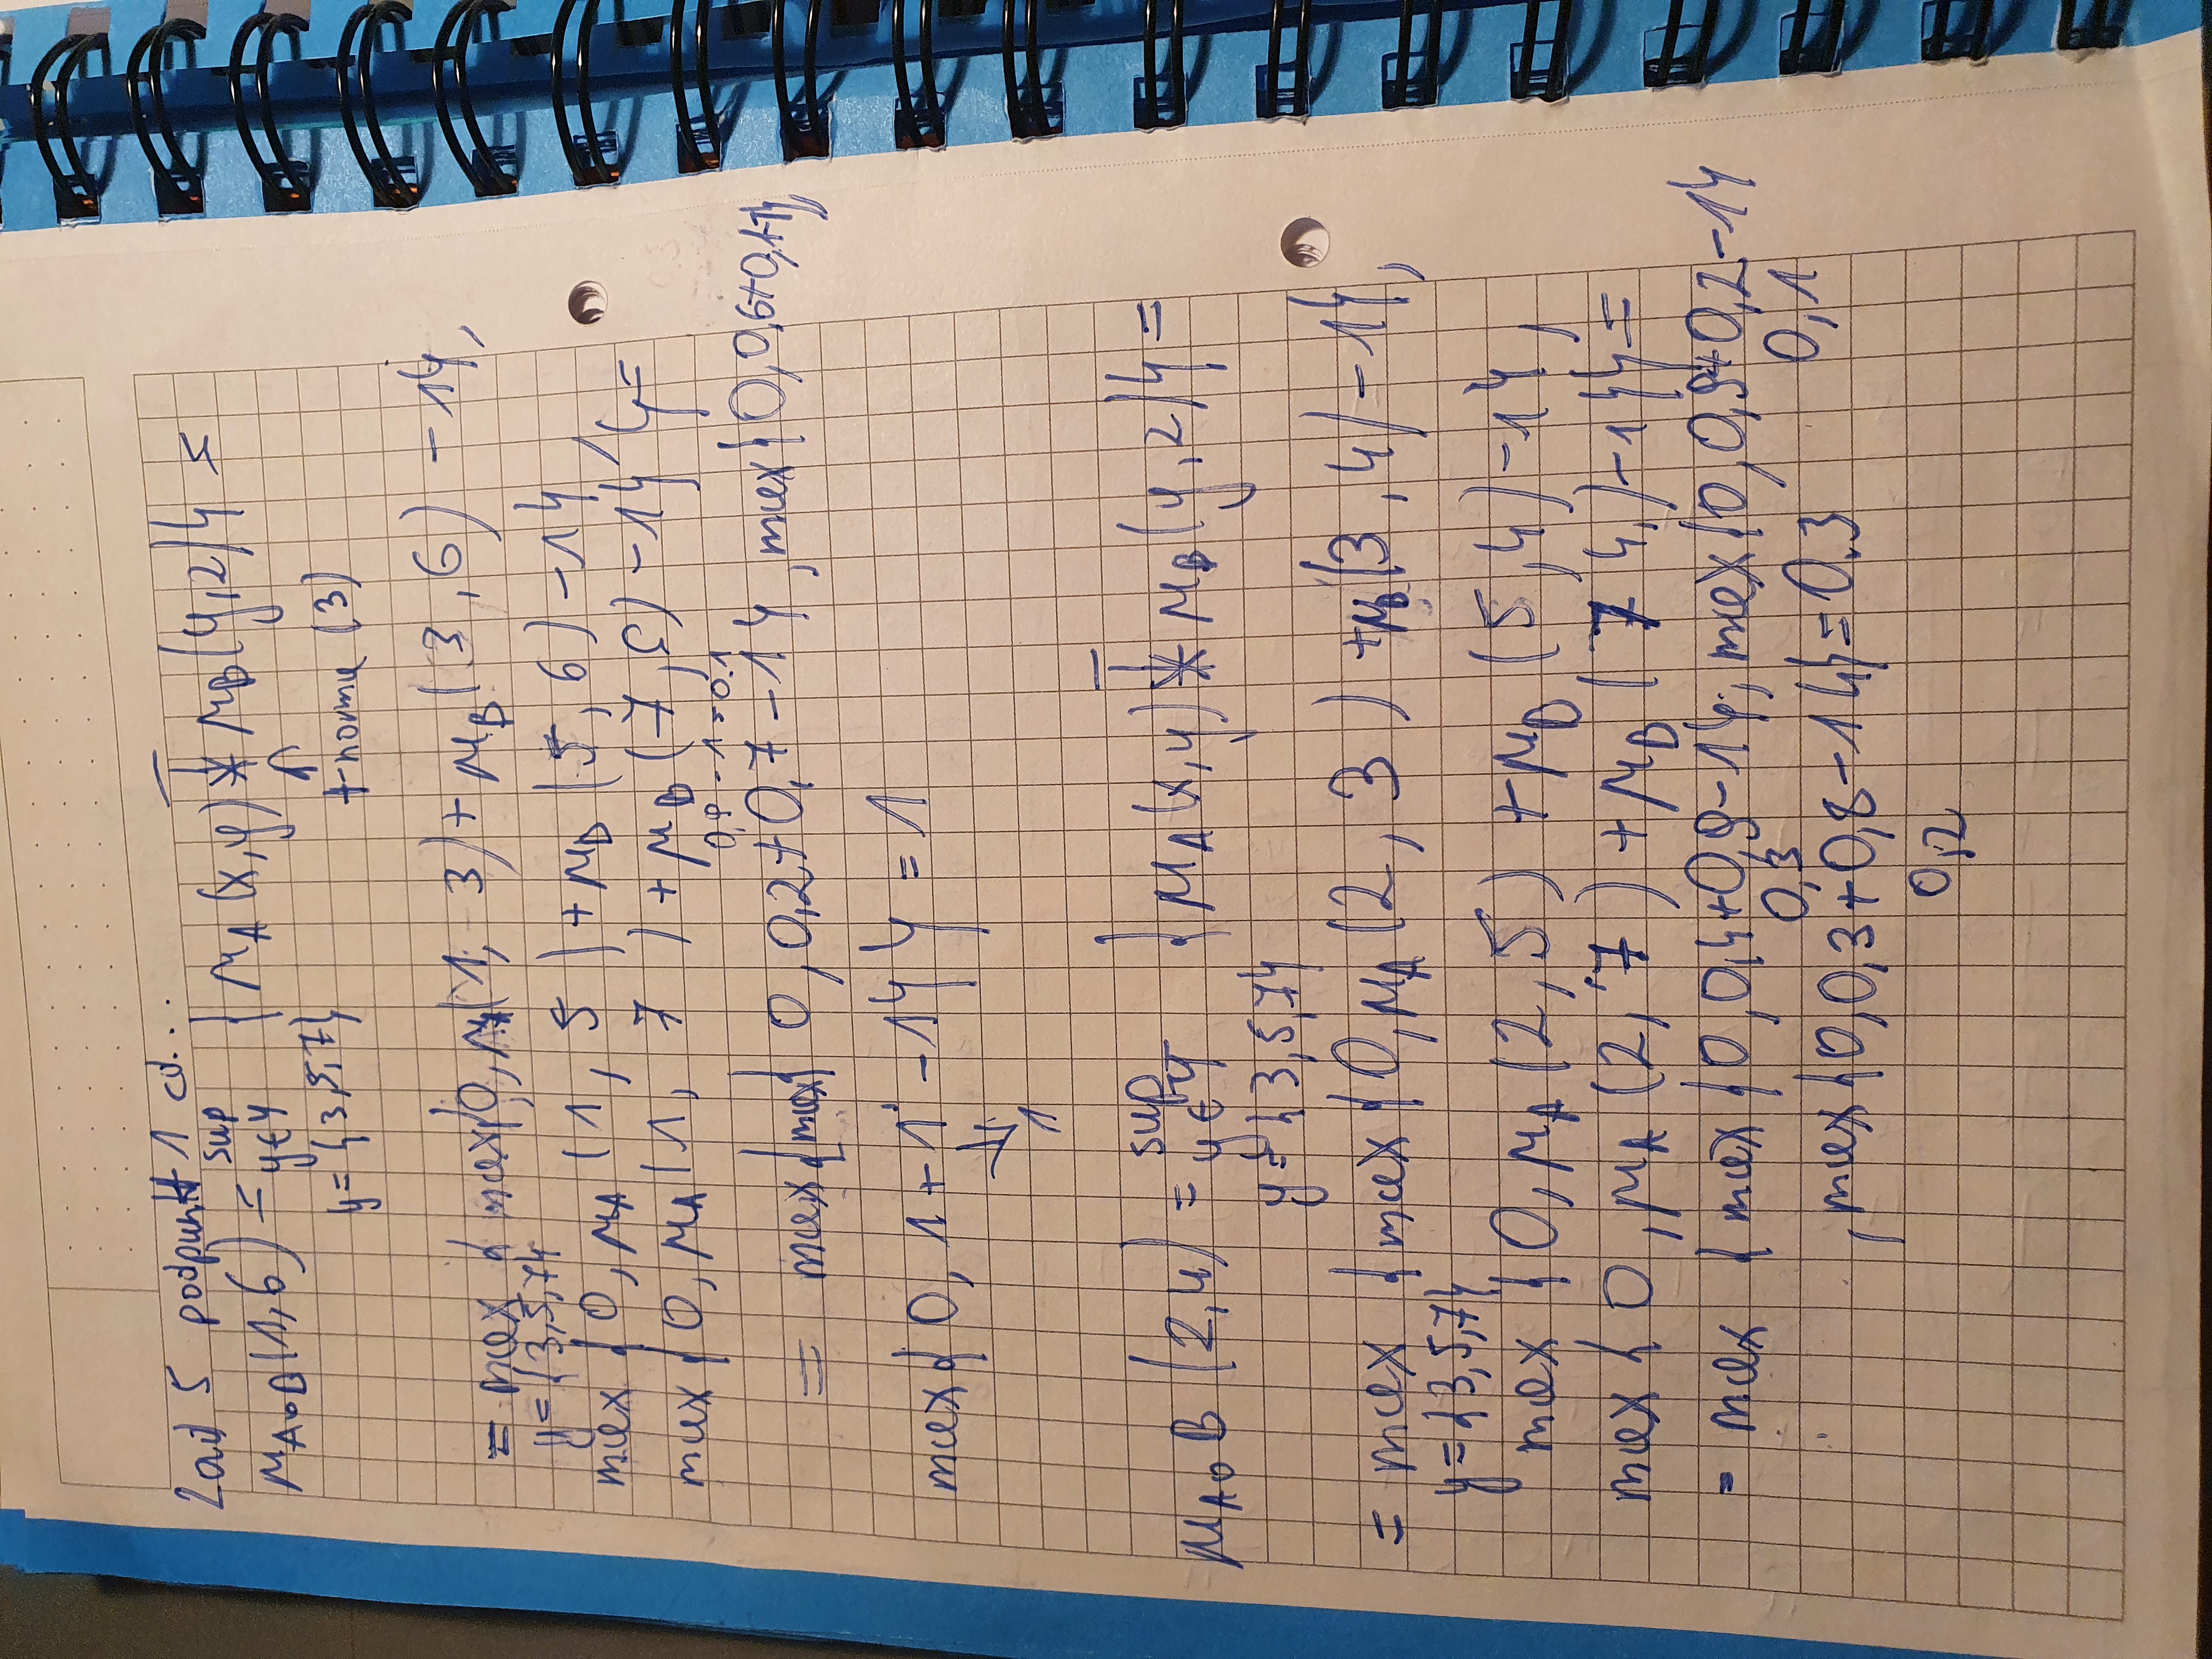 Zad 5 podpunkt 1 cd...
μA∘B(1,6) = sup y∈Y {μA(x,y) *T μB(y,z)} =
y={3,5,7} ↑
t-norma (3)
= max {max{0,μA(1, 3)+μB(3,6) -1},
y={3,5,7}
max {0,μA(1,5)+μB(5,6)-1},
max {0,μA(1,7)+μB(7,6)-1}}=
0,9-1=0.1
= max{max{0,0,2+0,7-1}, max{0,0,6+0,1-1},
max{0, 1+1-1}} = 1
↓
1
μA∘B (2,4) = sup y∈Y {μA(x,y) *T μB(y,z)}=
y={3,5,7}
= max {max {0,μA(2,3) +μB(3,4)-1},
y={3,5,7}
max {0,μA(2,5) +μB(5,4)-1},
max {0,μA(2,7)+μB(7 4,)-1}}=
= max {max{0,0,4+0,9-1}, max{0,0,9+0,2-1}
0,3 0,1
, max{0,0,3+0,8-1}}=0.3
0,2